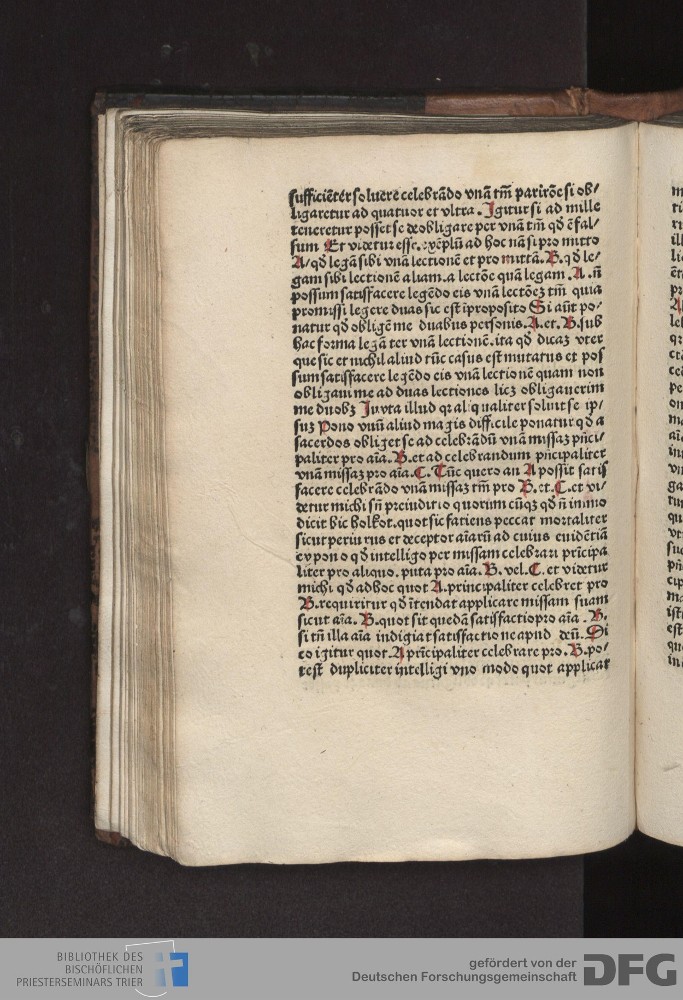 sufficiētėr soluere celebrādo vnā tm̄ parirōe si ob/
ligaretur ad quatuor et vltra. Igitur si ad mille
teneretur posset se deobligare per vnā tm̄ qd̄ ē fal/
sum Et videtur esse exēplū ad hoc nā si pro mitto
A/ qd̄ legā sibi vnā lectionē et pro mittā. B. qd̄ le/
gam sibi lectionē aliam. a lectōe quā legam. A. n̄
possum satisfacere legēdo eis vnā lectōeʒ tm̄ quia
promissi legere duas sic est ī proposito Si aūt po/
natur qd̄ obligē me duabus personis. A. et. B. sub
hac forma legā ter vnā lectionē. ita qd̄ dicaʒ vter
que sic et nichil aliud tūc casus est mutatus et pos
sum satisfacere legēdo eis vnā lectionē quam non
obligaui me ad duas lectiones licʒ obligauerim
me duobʒ Iuxta illud qr aliqualiter soluit se ip/
suʒ Pono vnū aliud magis difficile ponatur qd̄ a
sacerdos obliget se ad celebrādū vnā missaʒ pn̄ci/
paliter pro aīa. B. et ad celebrandum pn̄cipaliter
vnā missaʒ pro aīa. C. Tūc quero an A possit satis
facere celebrādo vnā missaʒ tm̄ pro B. et. C. et vi/
detur michi sn̄ preiuditio quorum cūqʒ qd̄ n̄ immo
dicit hic holkot. quot sic fatiens peccat mortaliter
sicut periurus et deceptor aīarū ad cuius euidētiā
expono qd̄ intelligo per missam celebrari prīcipa
liter pro aliquo. puta pro aīa. B. vel. C. et videtur
michi qd̄ ad hoc quot A. principaliter celebret pro
B. requiritur qd̄ ītendat applicare missam suam
sicut aīa. B. quot sit quedā satisfactio pro aīa. B.
si tn̄ illa aīa indigiat satisfactione apud deū. Di
co igitur quot. A prīcipaliter celebrare pro. B. po/
test dupliciter intelligi vno modo quot applicat
BIBLIOTHEK DES
BISCHÖFLICHEN
PRIESTERSEMINARS TRIER
gefördert von der
Deutschen Forschungsgemeinschaft
DFG